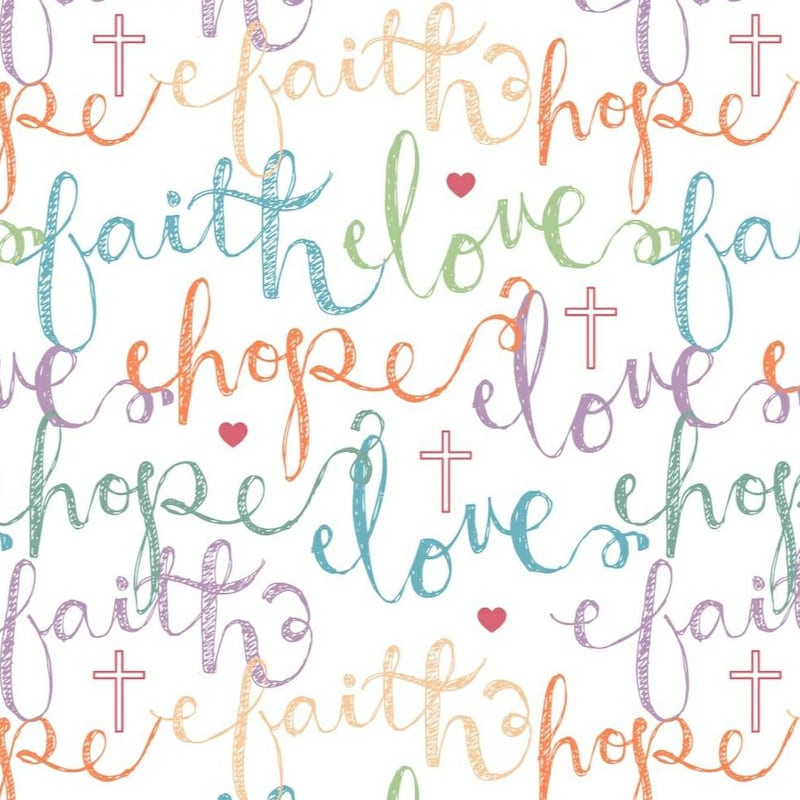 ope faith hope
faith love fa
ve hope love
hope love hop
faith fait
ope faith hope